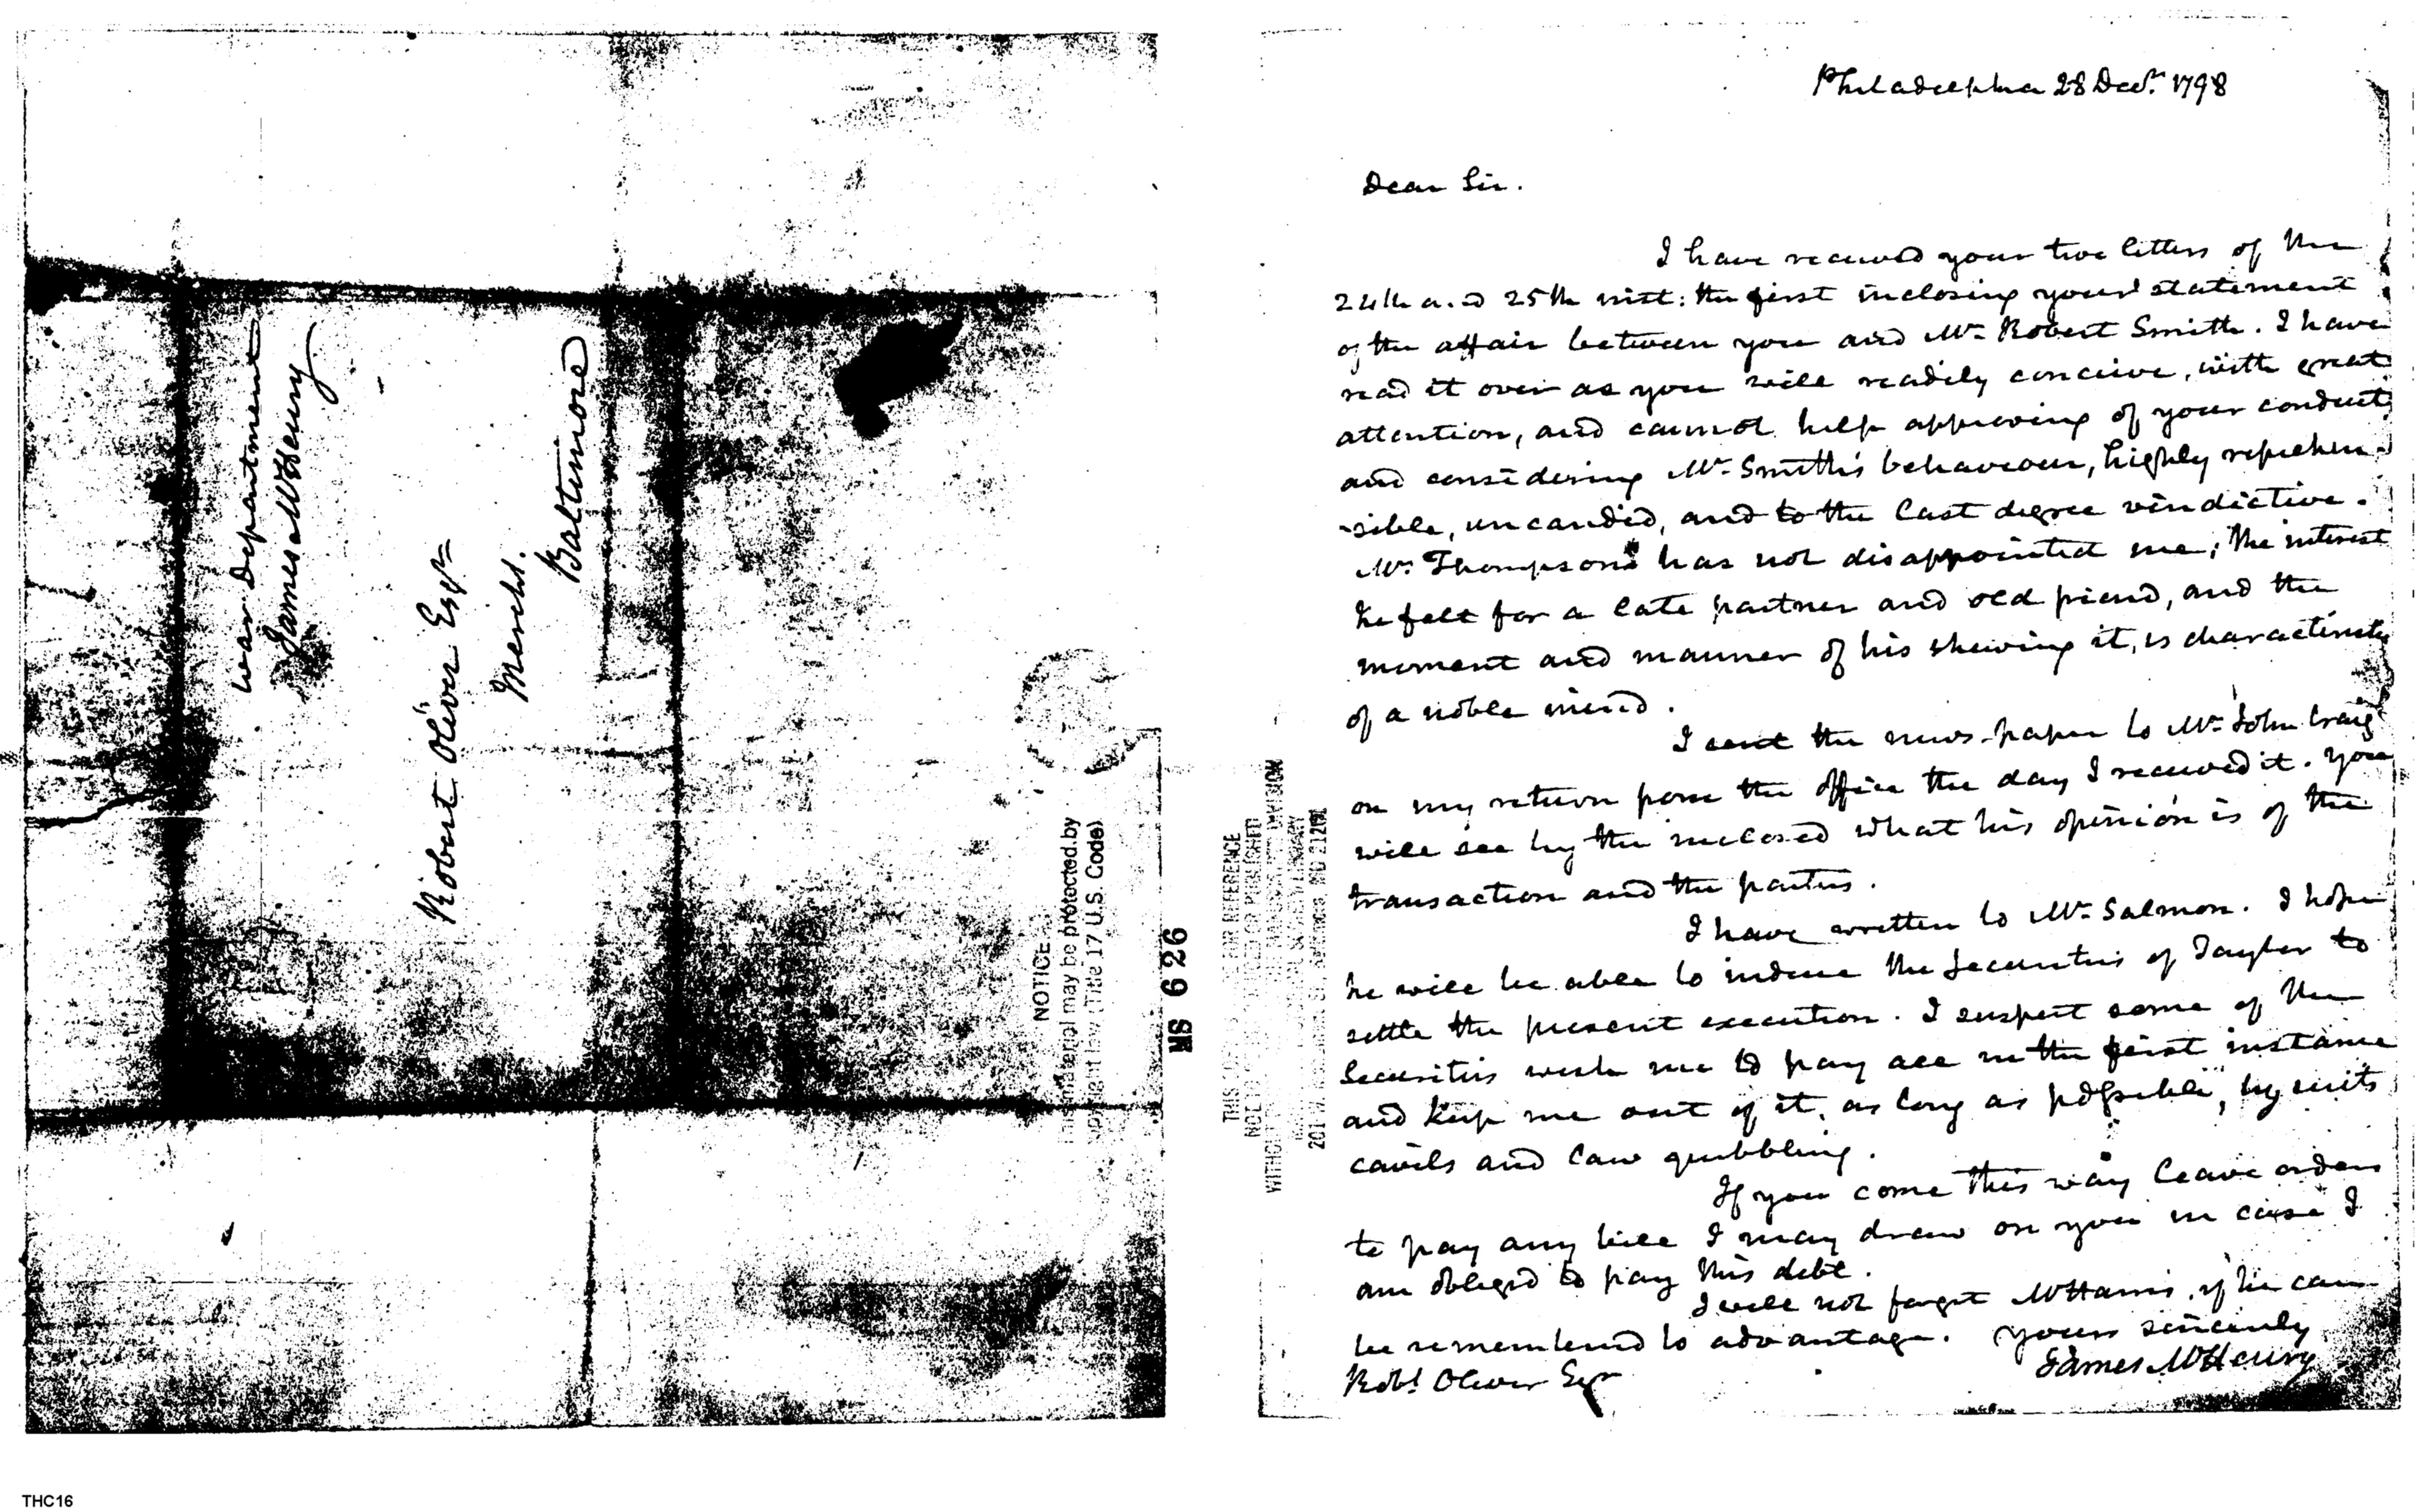 War Department
James McHenry
Robert Oliver Esqr
Mercht.
Baltimore
NOTICE
This material may be protected by
copyright law (Title 17 U.S. Code)
MS 626
Philadelphia 28 Decr. 1798
Dear Sir.
I have received your two letters of the
24th and 25th inst: the first inclosing your statement
of the affair between you and Mr. Robert Smith. I have
read it over as you will readily conceive, with great
attention, and cannot help approving of your conduct
and considering Mr. Smith's behaviour, highly reprehen-
-sible, uncandid, and to the last degree vindictive.
Mr. Thompson has not disappointed me; the interest
he felt for a late partner and old friend, and the
moment and manner of his shewing it, is characteristic
of a noble mind.
I sent the news-paper to Mr. John Craig
on my return from the office the day I received it. You
will see by the inclosed what his opinion is of the
transaction and the parties.
I have written to Mr. Salmon. I hope
he will be able to induce the Securities of Taylor to
settle the present execution. I suspect some of the
Securities wish me to pay all in the first instance
and keep me out of it, as long as possible, by suits
cavils and law quibbling.
If you come this way leave orders
to pay any bill I may draw on you in case I
am obliged to pay this debt.
I will not forget McHarris, if he can
be remembered to advantage. Yours sincerely
James McHenry
Robt. Oliver Esqr
THIS FOR REFERENCE
NOT TO BE OR PUBLISHED
WITHOUT DIVISION
201 W. MD 21201
THC16